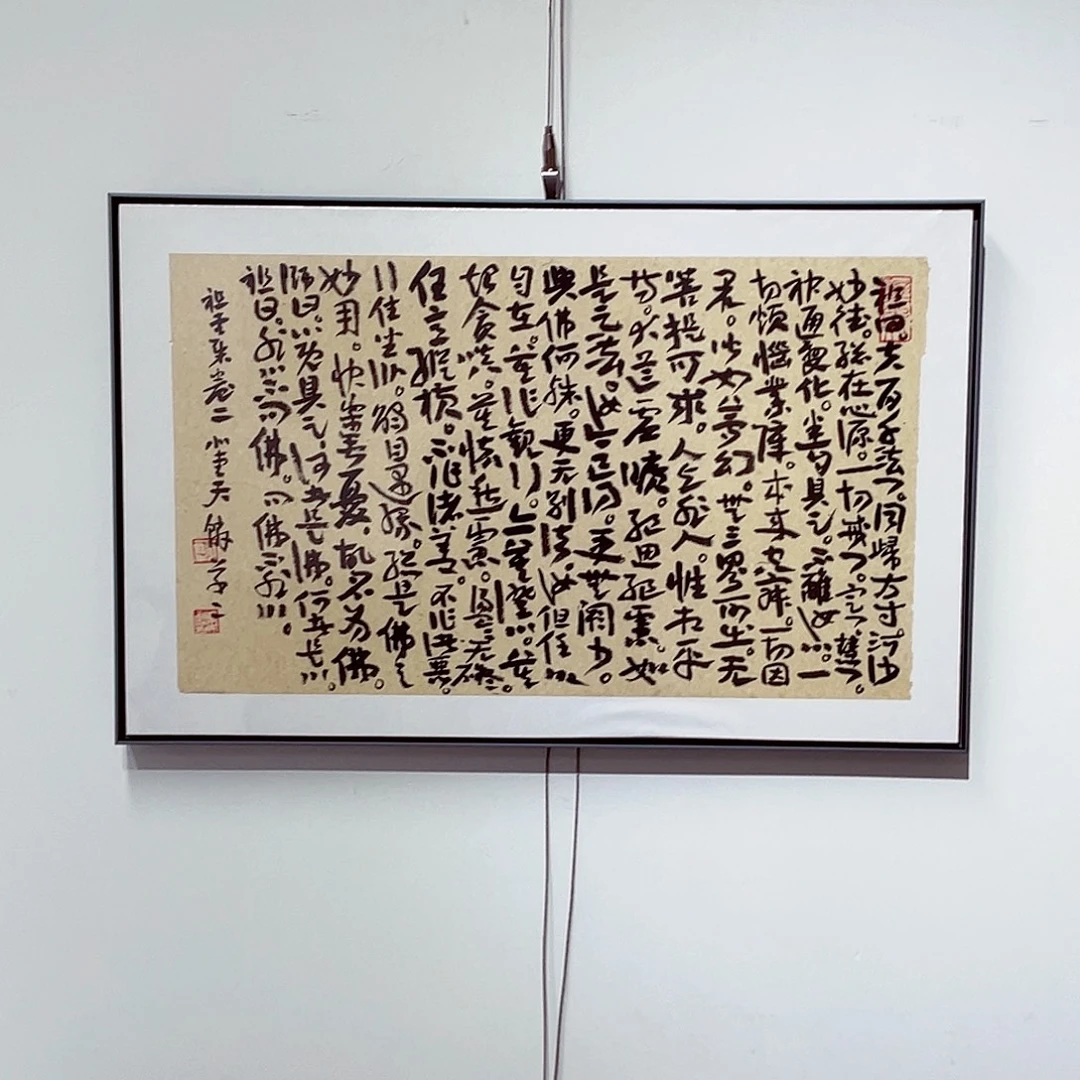 祖曰。夫百千法门。同歸方寸河沙
妙德。總在心源。一切戒门。定门慧门。
神通變化。悉自具足。不離汝心。一
切煩惱業障。本来空寂。一切因
果。皆如夢幻。無三界可出。无
菩提可求。人与非人。性相平
等。大道虚曠。絕思絕慮。如
是之法。汝今已得。更無阙少。
與佛何殊。更无别法。汝但任心
自在。莫作觀行。亦莫澄心。莫
起貪嗔。莫懷愁慮。蕩蕩无礙。
任意縱横。不作诸善。不作诸惡。
行住坐臥。觸目遇緣。總是佛之
妙用。快樂無憂。故名为佛。
师曰。心既具足。何者是佛。何者是心。
祖曰。非心不问佛。问佛非不心。
祖堂集卷二